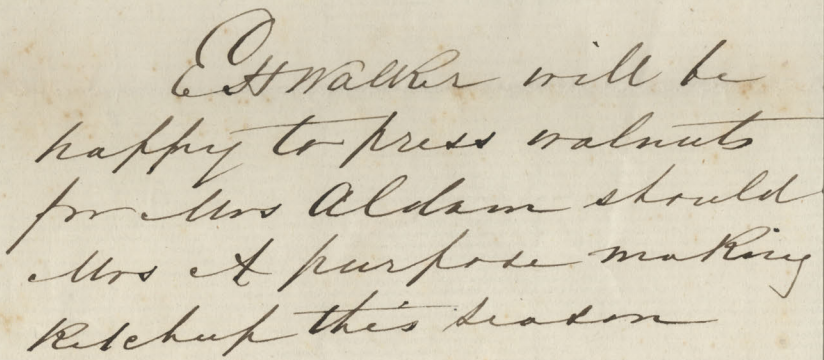 E H Walker will be
happy to press walnuts
for Mrs Aldam should
Mrs A purpose making
Ketchup this season